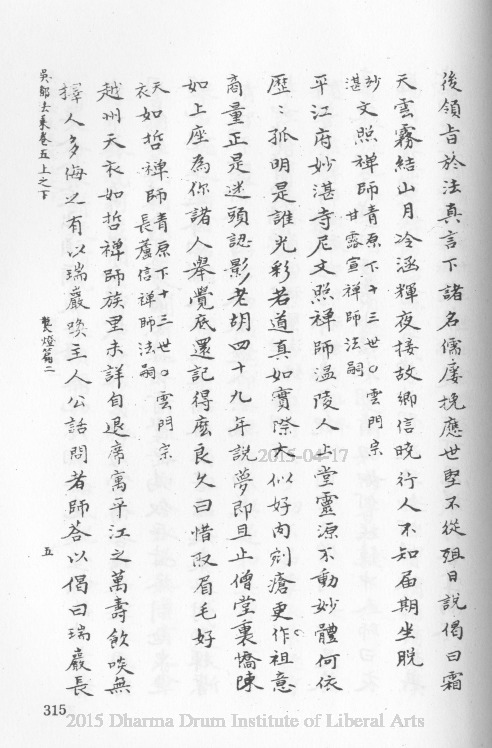 後領旨於法真言下諸名儒屢挽應世堅不從殂日說偈曰霜
天雲霧結山月冷涵輝夜接故鄉信曉行人不知屆期坐脫
妙湛文照禪師青原下十三世○雲門宗
甘露宣禪師法嗣
平江府妙湛寺尼文照禪師溫陵人上堂靈源不動妙體何依
歷歷孤明是誰光彩若道真如實際大似好肉剜瘡更作祖意
商量正是迷頭認影老胡四十九年說夢即且止僧堂裏憍陳
如上座為你諸人舉覺底還記得麼良久曰惜取眉毛好
天衣如哲禪師青原下十三世○雲門宗
長蘆信禪師法嗣
越州天衣如哲禪師族里未詳自退席寓平江之萬壽飲啖無
擇人多侮之有以瑞巖喚主人公話問者師答以偈曰瑞巖長
吳都法乘卷五上之下
焚燈篇二
五
315
2015-04-17
2015 Dharma Drum Institute of Liberal Arts